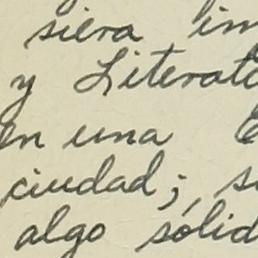 siera im
y Literat
en una
ciudad; s
algo sólid